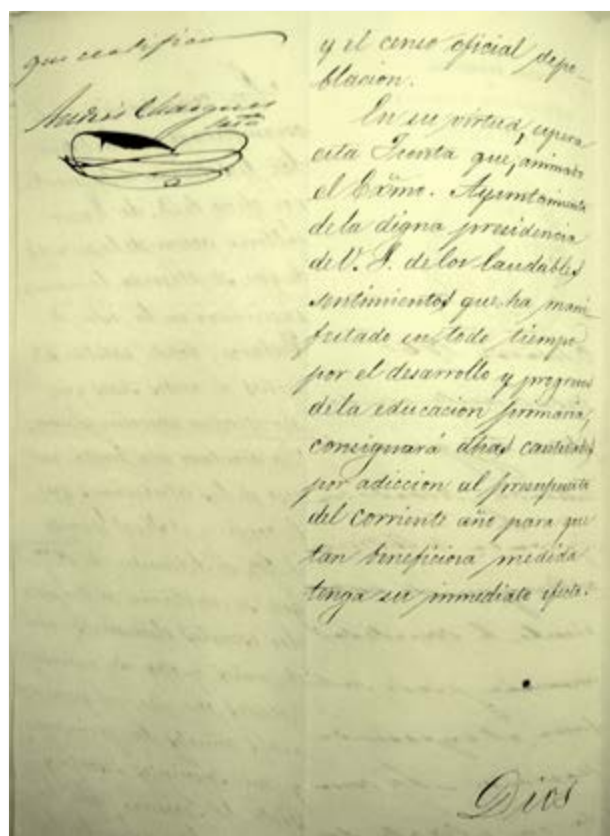 que certifican
Andrés Charques
y el censo oficial depo-
blacion.
En su virtud, espera
esta Junta que, animado
el Exmo. Ayuntamiento
dela digna presidencia
de V. S. delos laudables
sentimientos que ha mani
festado en todo tiempo
por el desarrollo y progreso
dela educacion primaria,
consignará dhas cantidades
por adiccion al presupuesto
del corriente año para que
tan beneficiosa medida
tenga su inmediato efecto.
Dios